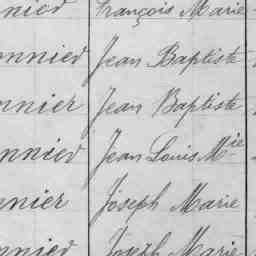 nied François Marie
onnied Jean Baptiste
onnier Jean Baptiste
onnied Jean Louis Mie
onnier Joseph Marie
onnied Joseph Marie